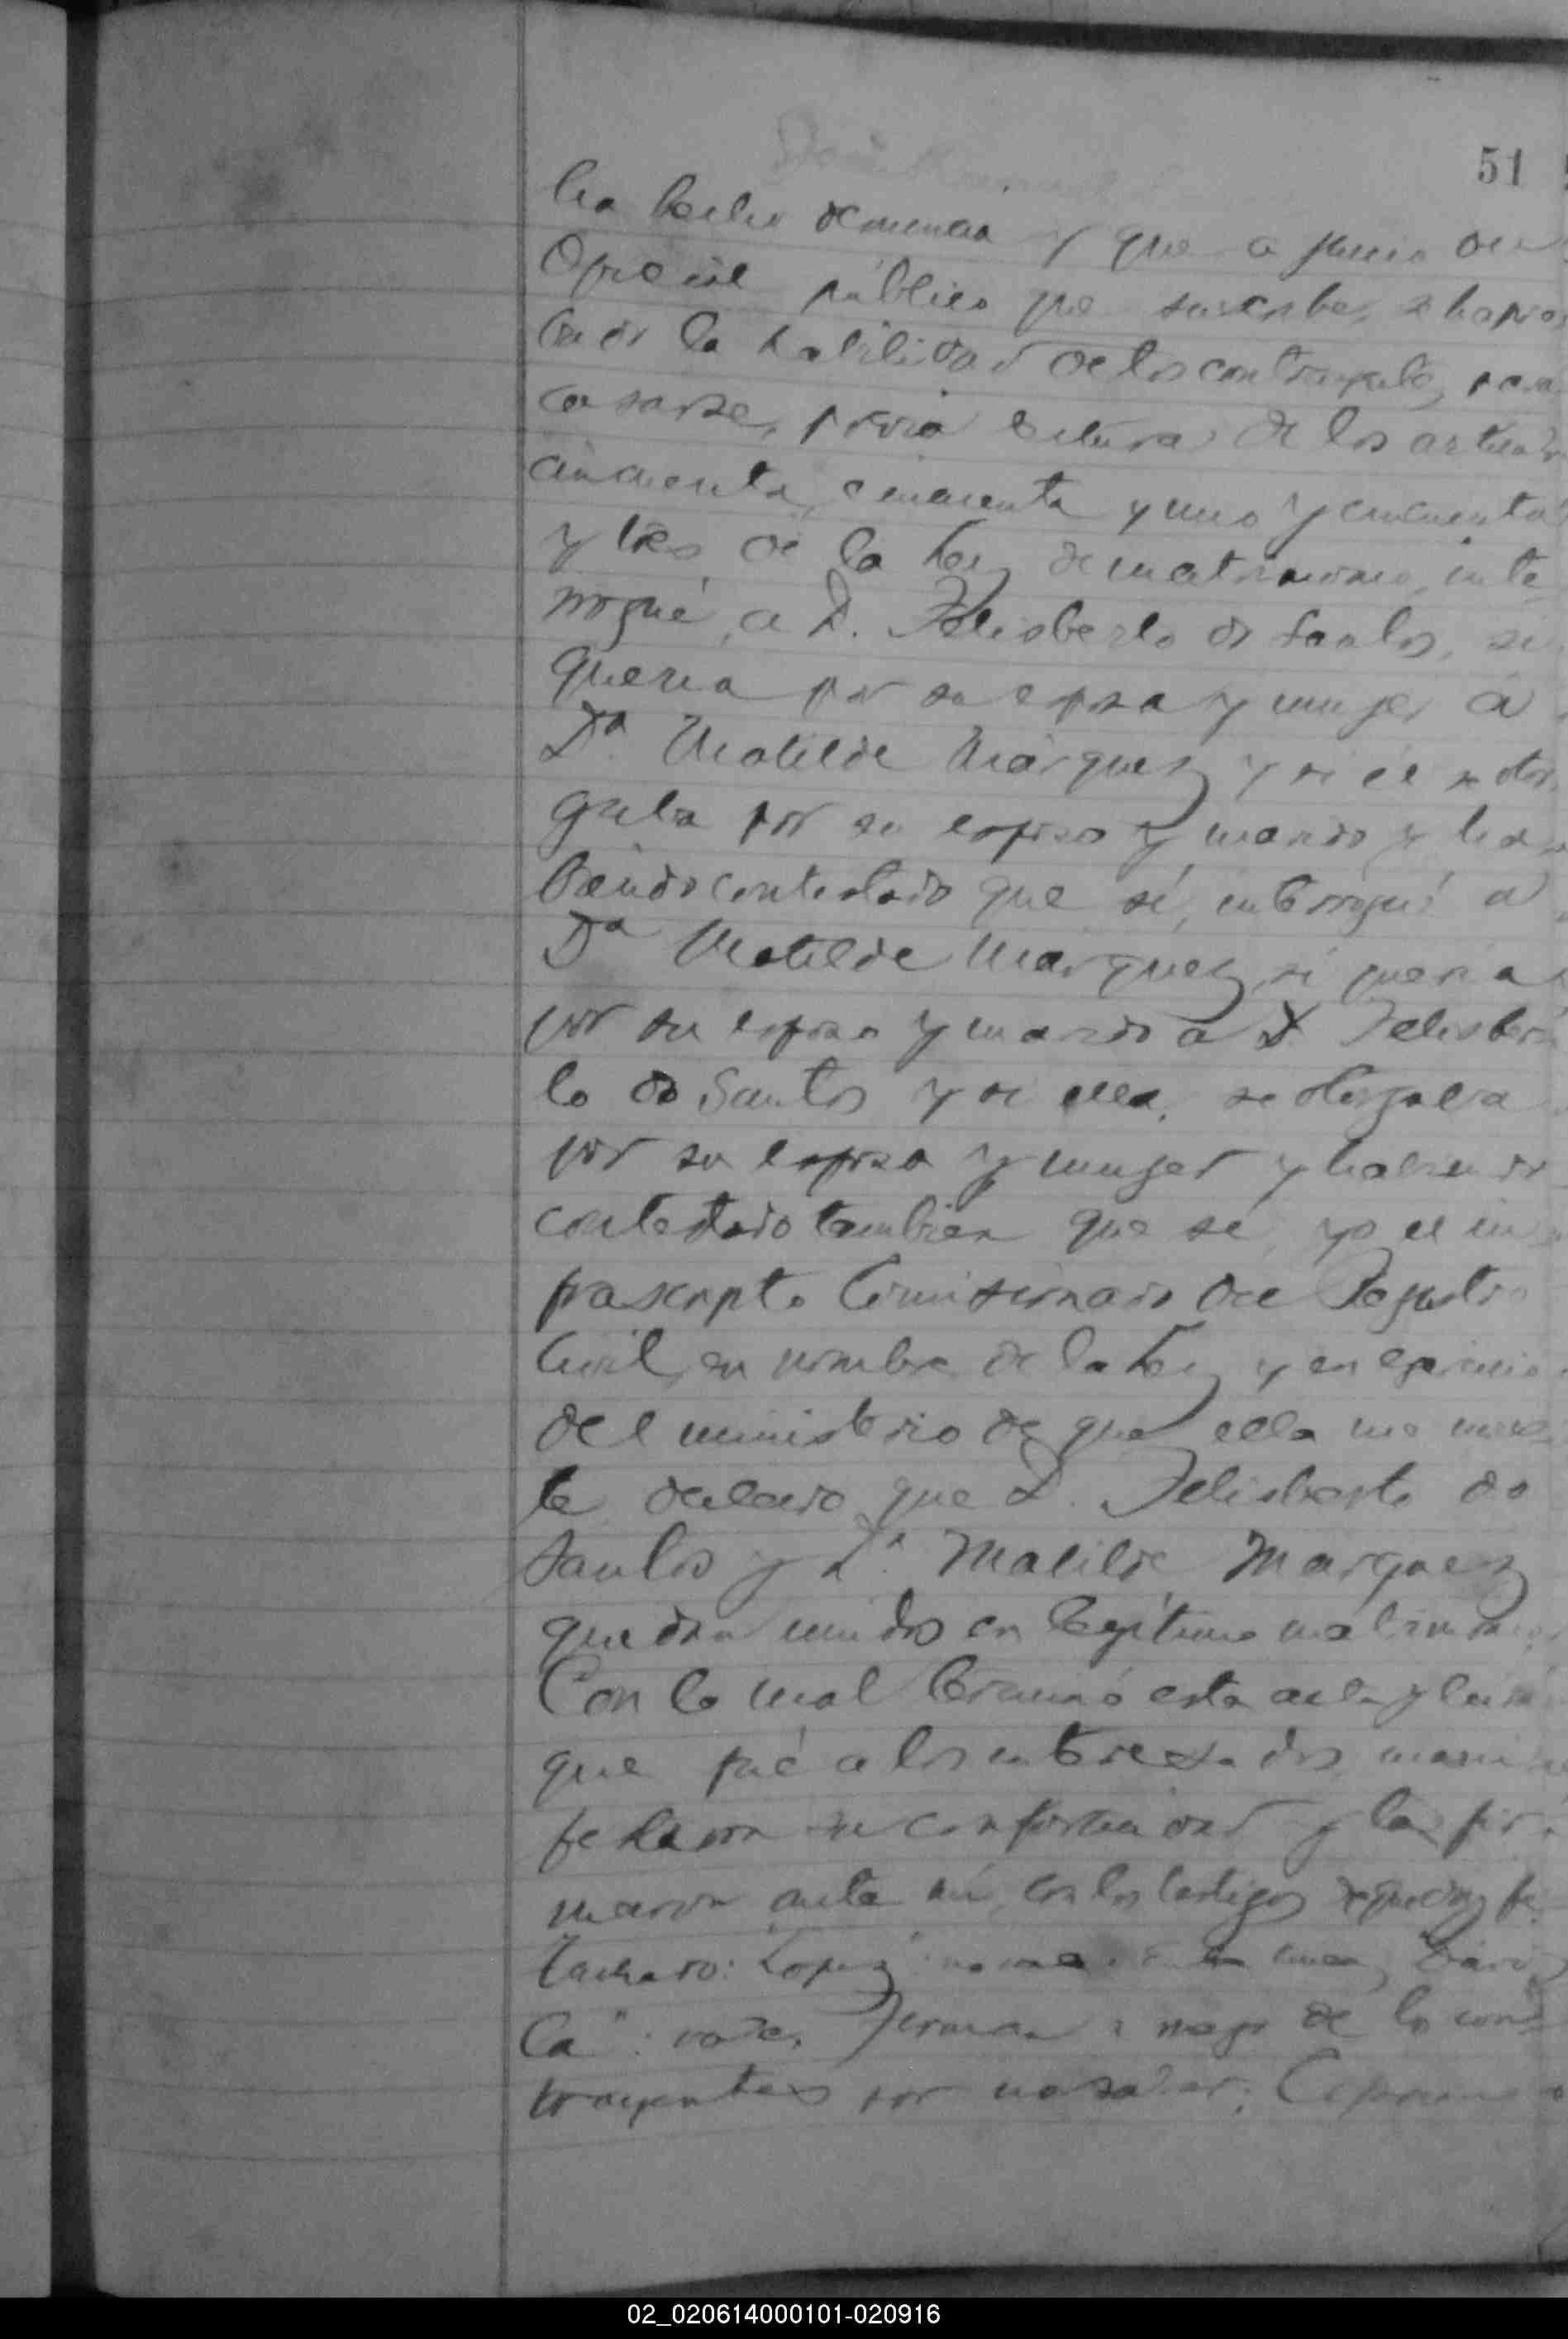 51
ha hecho denuncia y que a juicio del
Oficial público que suscribe, se ha pro
bado la habilidad de los contrayentes, para
casarse, previa lectura de los articulos
cincuenta, cincuenta y uno y cincuenta
y tres de la Ley de matrimonio, inte
rrogué, a D. Felisberto do Santos, si
queria por su esposa y mujer á
Dª Matilde Márquez y si él se otor
gaba por su esposo y marido y ha
biendo contestado que sí, interrogué á
Dª Matilde Marquez, si queria
por su esposo y marido a D. Felisber
to do Santos y si ella, se otorgaba
por su esposa y mujer y habiendo
contestado tambien que sí, yo el in
frascripto Comisionado del Registro
Civil, en nombre de la Ley y en ejercicio
del ministerio de que ella me invis
te, declaro que D. Felisberto do
Santos y Dª Matilde Marquez
quedan unidos en legítimo matrimonio.
Con lo cual terminó esta acta y leida
que fué a los interesados, mani
festaron su conformidad y la fir
maron ante mí, con los testigos de que doy fe.
Tachado: "Lopez" no vale. Entre lineas
Ca": vale. Firman a ruego de los con
trayentes por no saber;
02_020614000101-020916